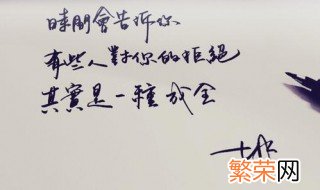 時間會告訴你
有些人對你的拒絕
其實是一種成全
繁荣网